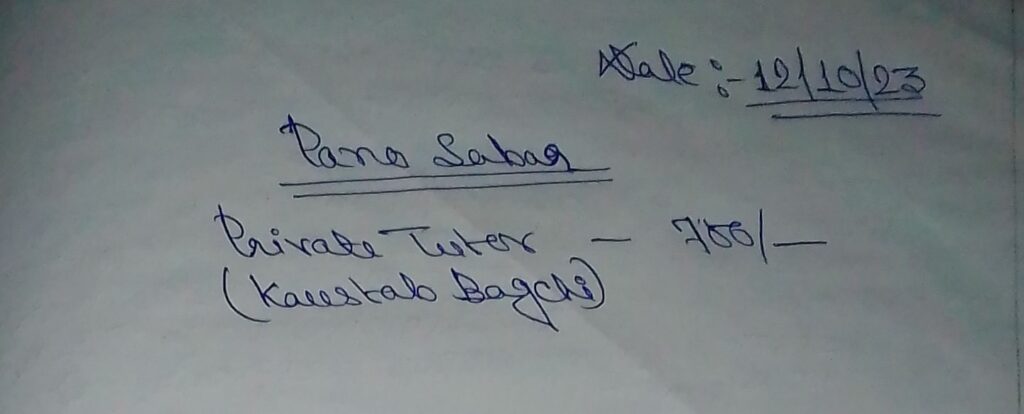 Date :- 12/10/23
Pano Sabar
Private Tutor — 700/—
(Kaustab Bagchi)